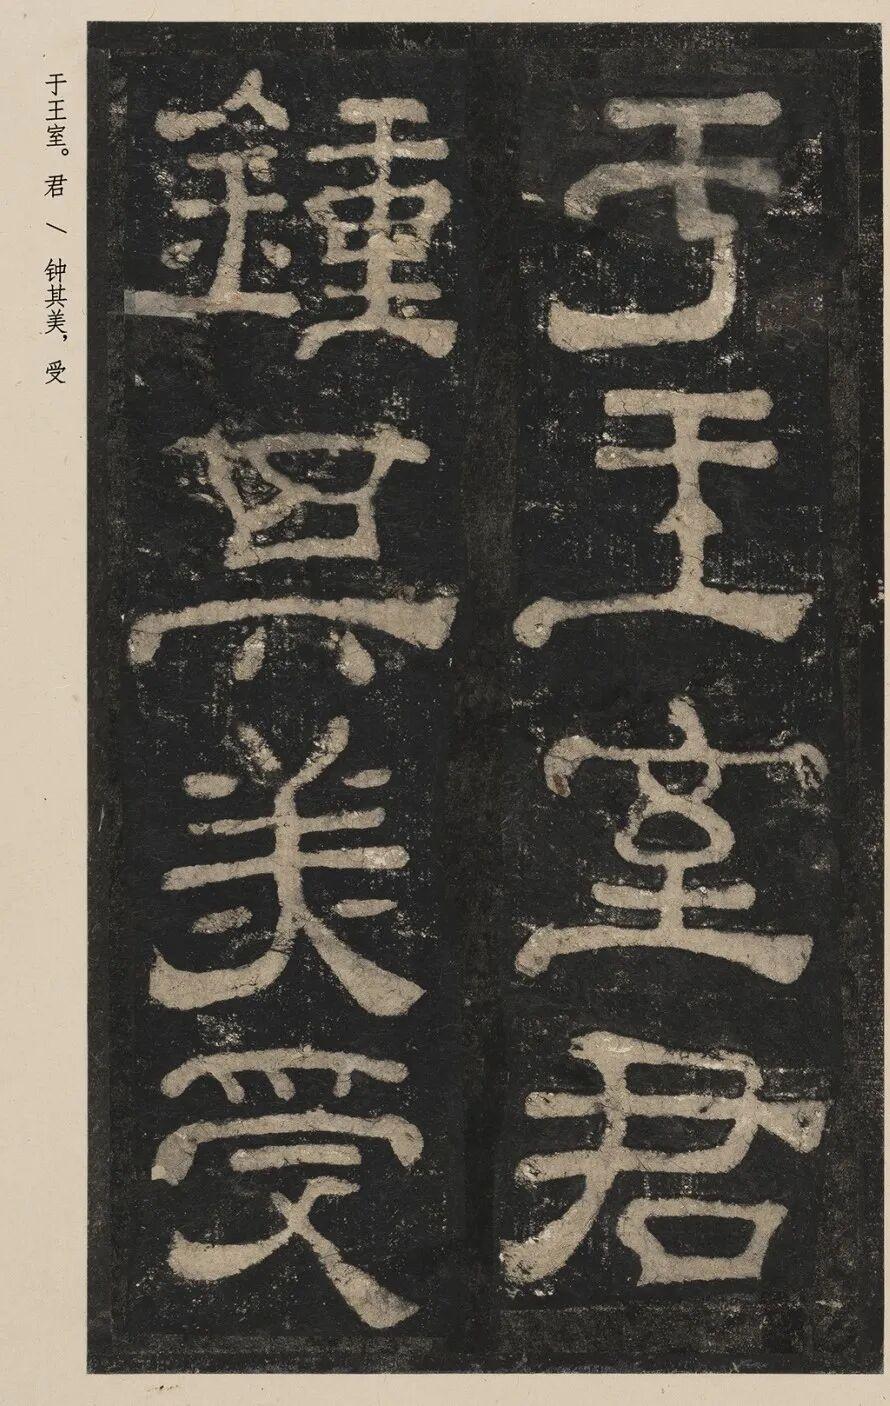 于王室君
鍾其美受
于王室。君 \ 钟其美，受